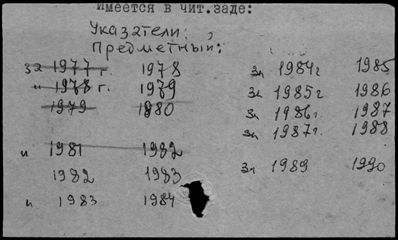 Имеется в чит.заде:
Указатели:
Предметный:
за 1977 г 1978
" 1978 г. 1979
1979 1980
" 1981 1982
1982 1983
" 1983 1984
за 1984г 1985
за 1985г 1986
за 1986г 1987
за 1987г. 1988
за 1989 1990